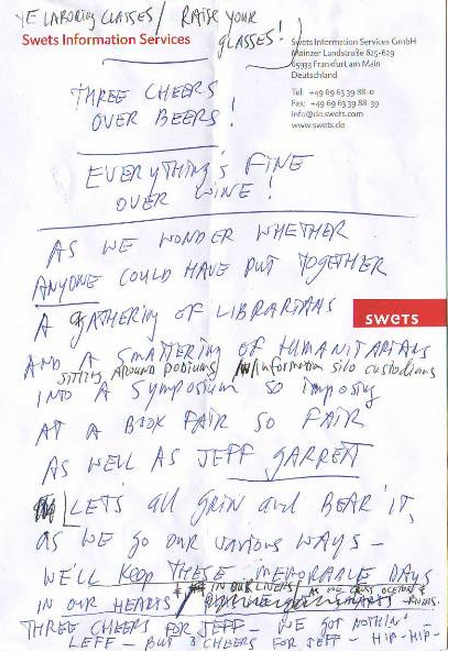 YE LABORING CLASSES / RAISE YOUR
GLASSES!
Swets Information Services
Swets Information Services GmbH
Mainzer Landstraße 625-629
65933 Frankfurt am Main
Deutschland
Tel: +49 69 63 39 88-0
Fax: +49 69 63 39 88-39
info@de.swets.com
www.swets.de
THREE CHEERS
OVER BEERS!
EVERYTHING'S FINE
OVER WINE!
AS WE WONDER WHETHER
ANYONE COULD HAVE PUT TOGETHER
A GATHERING OF LIBRARIANS
swets
AND A SMATTERING OF HUMANITARIANS
SITTING AROUND PODIUMS / information silo custodians
INTO A Symposium SO imposing
AT A BOOK FAIR SO FAIR
AS WELL AS JEFF GARRETT
LET'S all GRIN and BEAR IT,
as WE GO OUR various WAYS –
WE'LL KEEP THESE MEMORABLE DAYS
IN OUR LIVERS / AS WE CROSS OCEANS & RIVERS.
IN OUR HEARTS
THREE CHEERS FOR JEFF – WE GOT NOTHIN'
LEFF – BUT 3 CHEERS FOR JEFF – HIP-HIP-